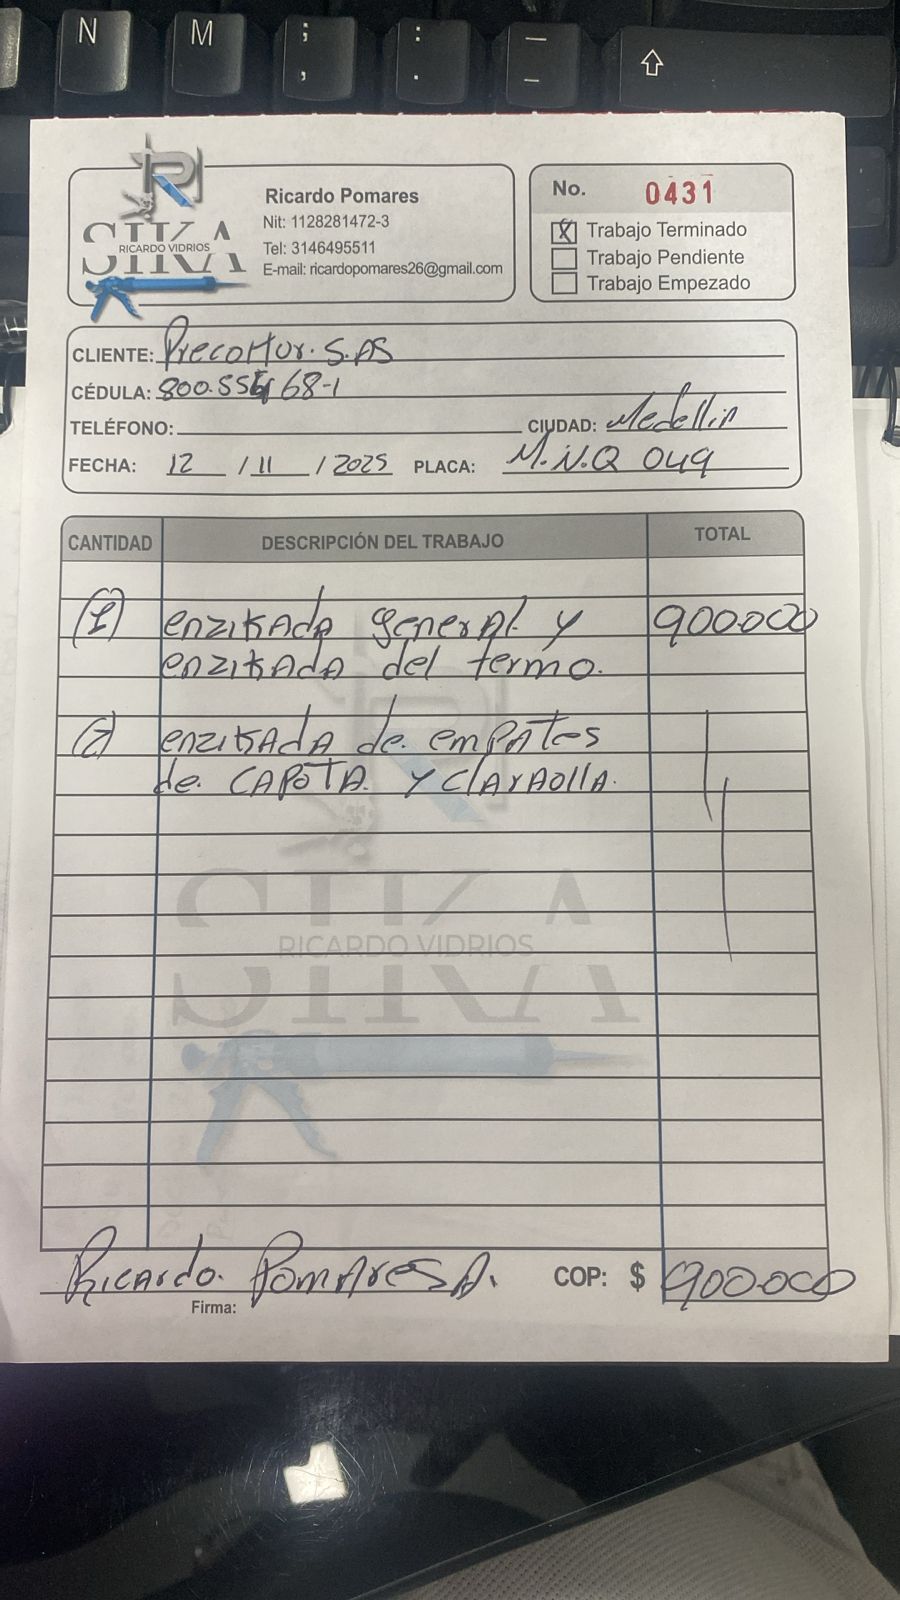 N M ; , : . — _
Ricardo Pomares
Nit: 1128281472-3
Tel: 3146495511
E-mail: ricardopomares26@gmail.com
SIKA
RICARDO VIDRIOS
No. 0431
X Trabajo Terminado
Trabajo Pendiente
Trabajo Empezado
CLIENTE: Precoltur. S.AS
CÉDULA: 68-1
TELÉFONO: CIUDAD: Medellin
FECHA: 12 / 11 / 2025 PLACA: M.N.Q 049
CANTIDAD DESCRIPCIÓN DEL TRABAJO TOTAL
(1) enzikada general y 900.000
enzikada del termo.
enzikada de empates
de CAPOTA y ClarAollA.
SIKA
RICARDO VIDRIOS
Ricardo. Pomares A.
COP: $ 900.000
Firma: